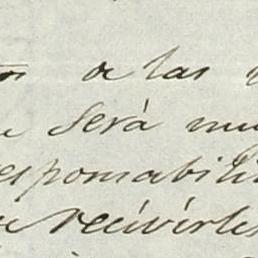 os a las
e Será mu
esponsabili
ue recivirles